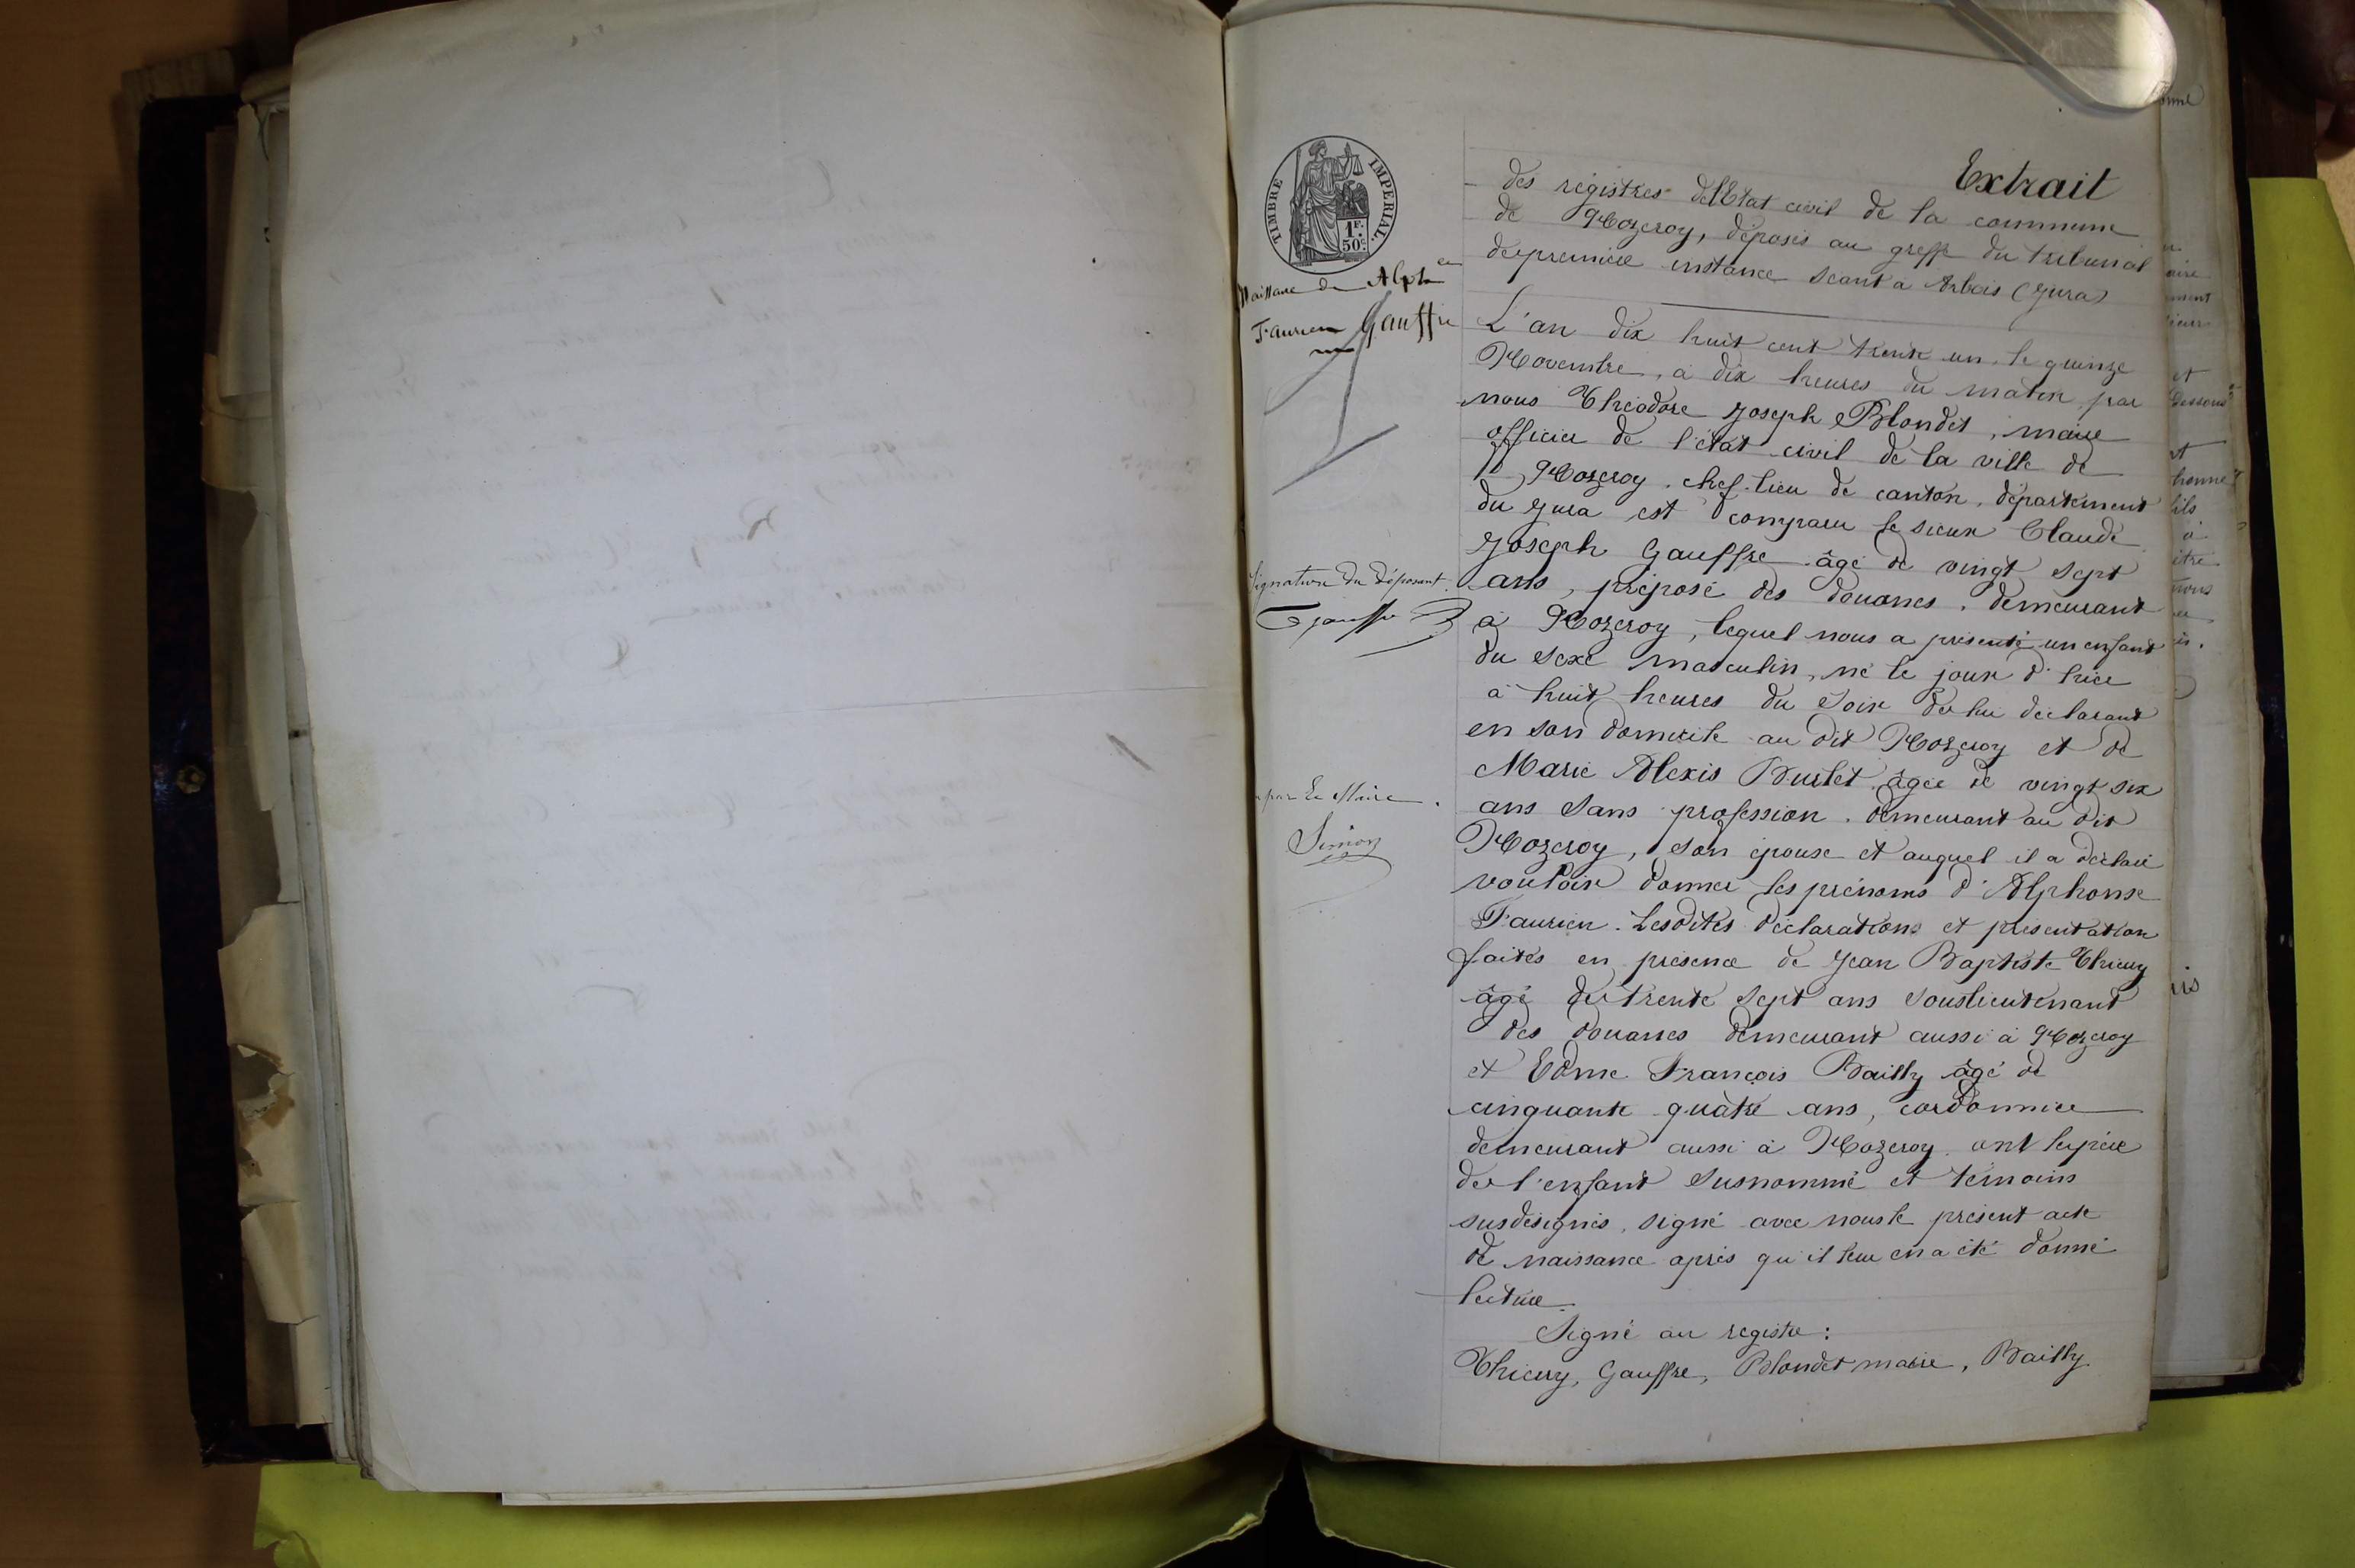 Extrait
des régistres de l'Etat civil de la commune
de Nozeroy, déposés au greffe du tribunal
de première instance séant à Arbois (Jura)
TIMBRE IMPERIAL.
1F.
50c.
Naissance de Alph
Faurien Gauffre
L'an dix huit cent trente un, le quinze
Novembre, à dix heures du matin, par
nous Théodore Joseph Blondet, maire
officier de l'état civil de la ville de
Nozeroy, chef-lieu de canton, département
du Jura est comparu le sieur Claude
Joseph Gauffre âgé de vingt sept
ans, préposé des douanes, demeurant
à Nozeroy, lequel nous a présenté un enfant
du sexe masculin, né le jour d'hier
à huit heures du soir de lui déclarant
en son domicile au dit Nozeroy et de
Marie Alexis Burlet, âgée de vingt six
ans sans profession, demeurant au dit
Nozeroy, son épouse et auquel il a déclaré
vouloir donner les prénoms d'Alphonse
Faurien. Lesdites déclarations et présentation
faites en présence de Jean Baptiste Thieury
âgé de trente sept ans souslieutenant
des douanes demeurant aussi à Nozeroy
et Edme François Bailly âgé de
cinquante quatre ans, cordonnier
demeurant aussi à Nozeroy, ont le père
de l'enfant susnommé et témoins
susdésignés, signé avec nous le présent acte
de naissance après qu'il leur en a été donné
lecture.
Signé au registre:
Thieury, Gauffre, Blondet maire, Bailly
Signature du déposant.
Gauffre
par le Maire.
Simon